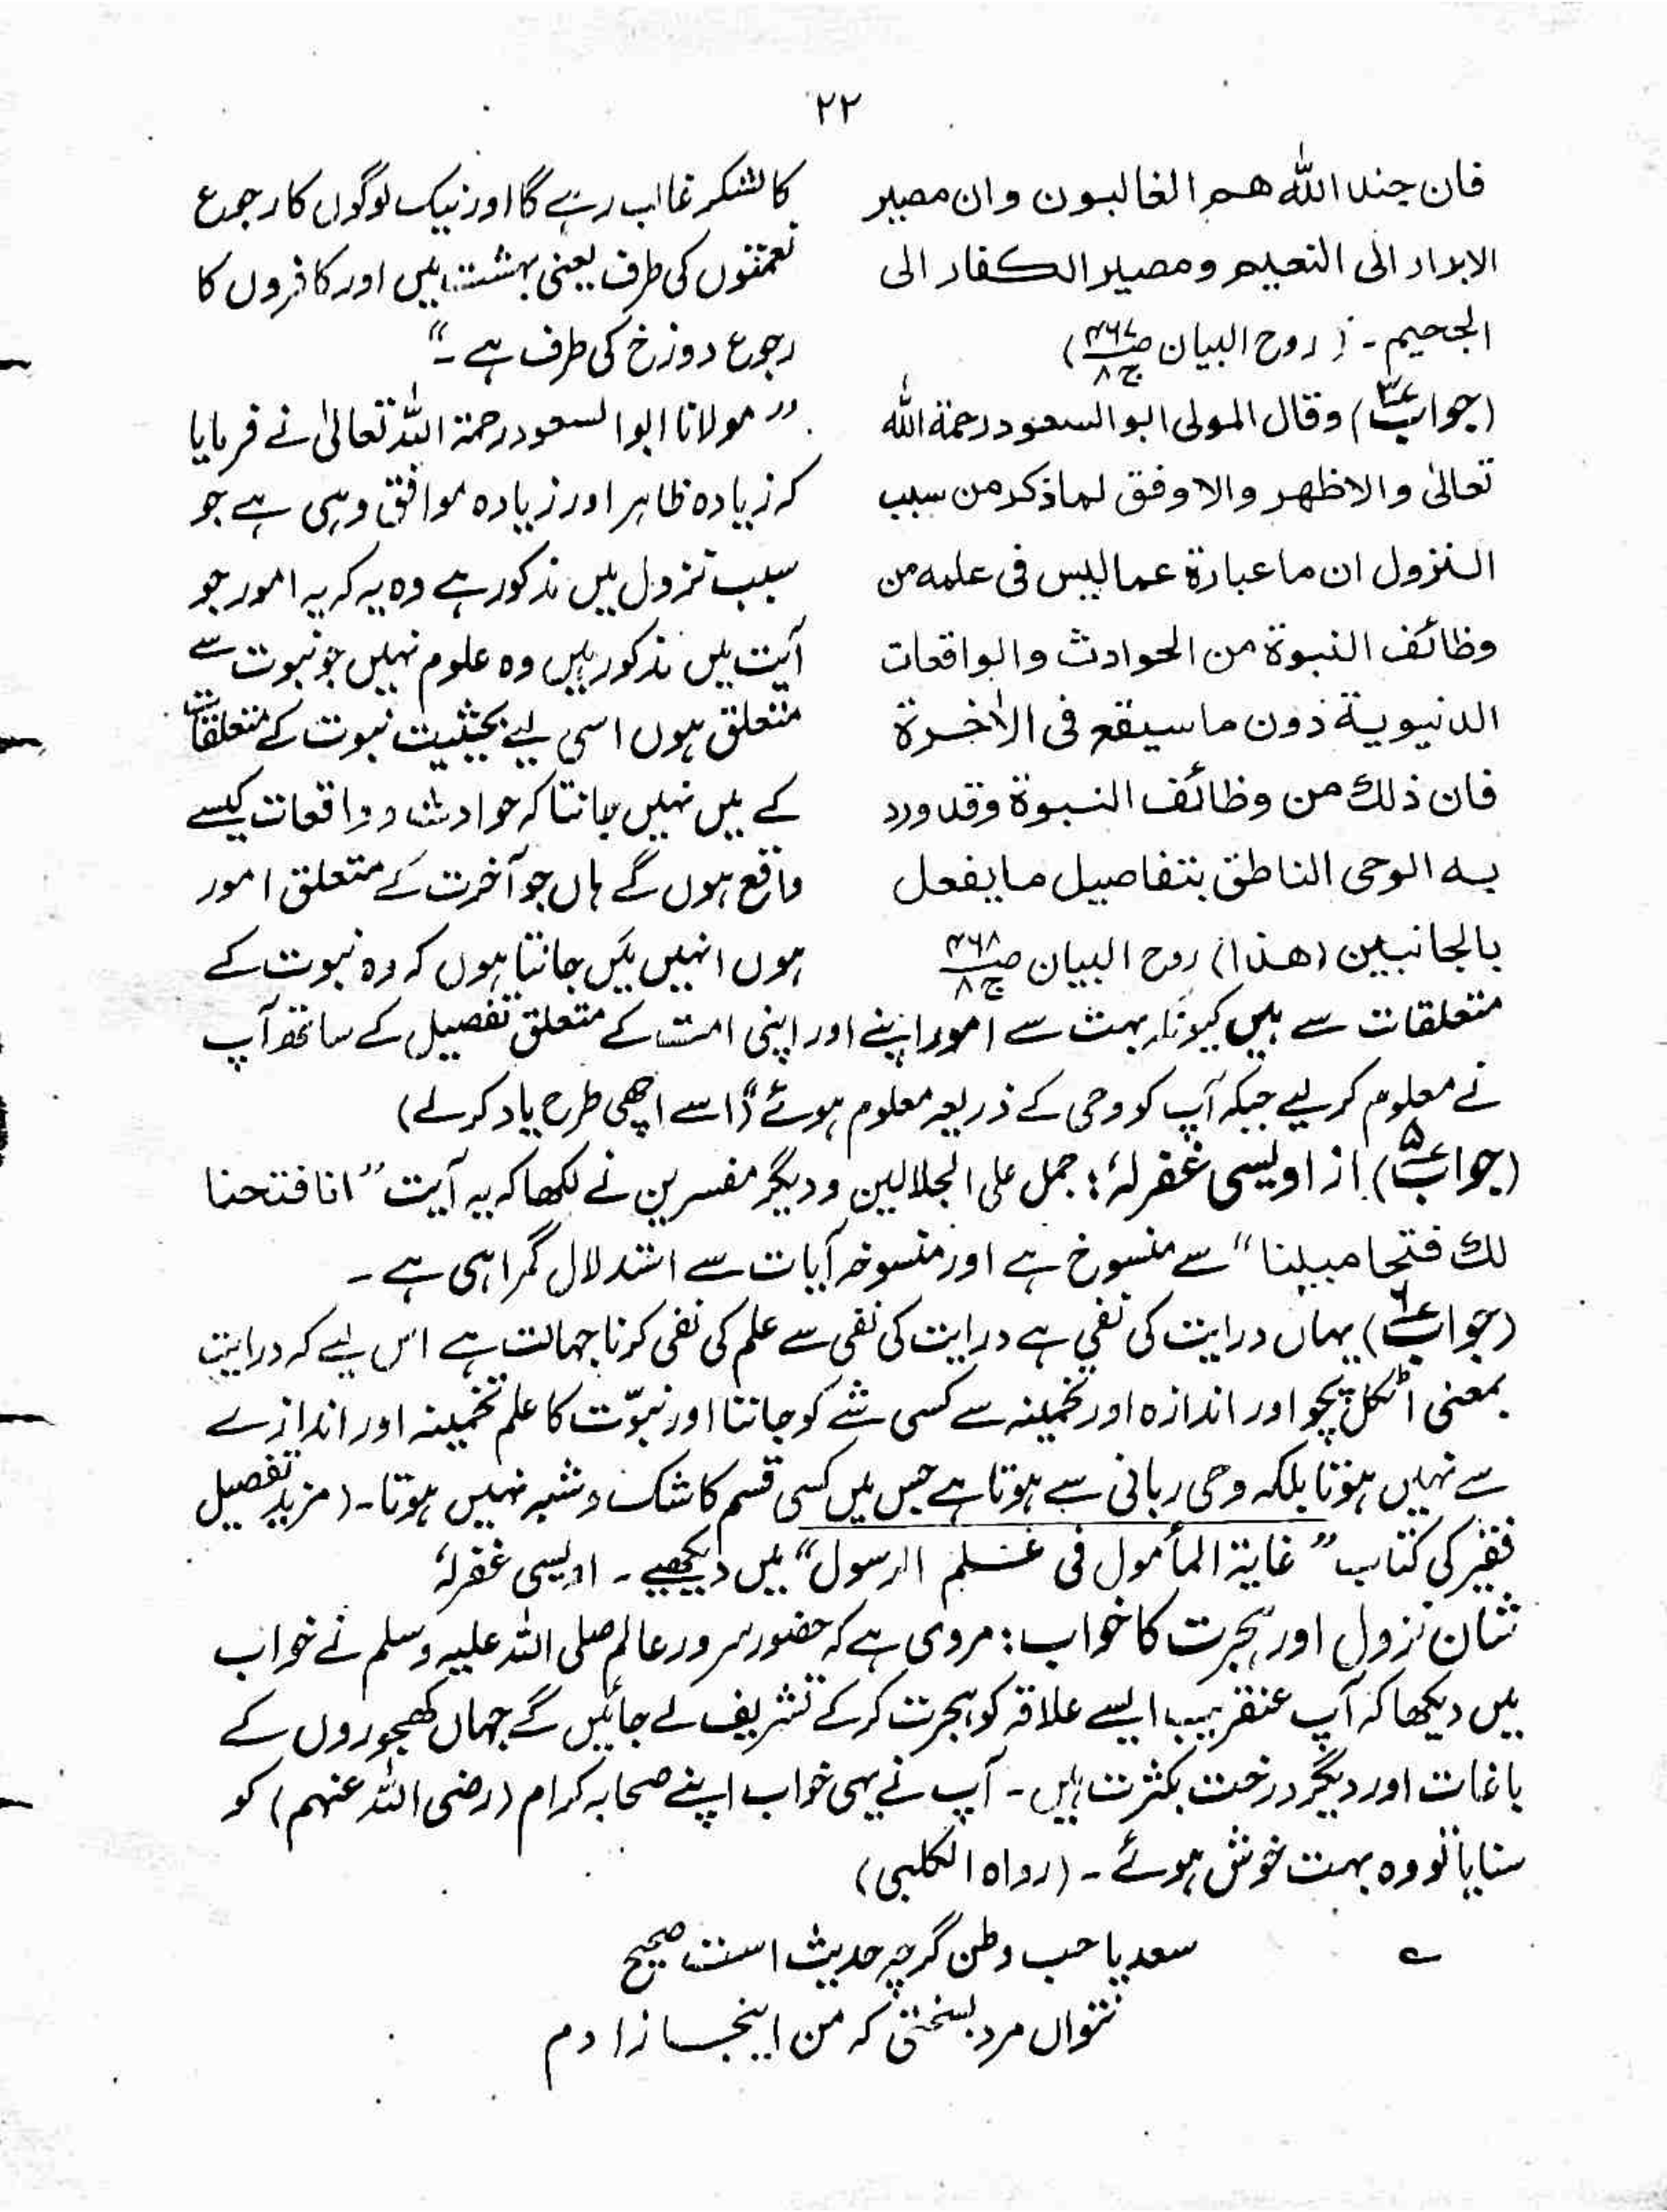 ۲۲
فان جند اللہ هم الغالبون وان مصير
الابرار الى النعيم ومصير الكفار الى
الجحيم۔ (روح البیان ص۴۶۷ ج۸)
(جواب۴) وقال المولى ابو السعود رحمة الله
تعالیٰ والاظهر والاوفق لما ذكر من سبب
النزول ان ما عبارة عما ليس فى علمه من
وظائف النبوة من الحوادث والواقعات
الدنيوية دون ما سيقع فى الاٰخرة
فان ذلك من وظائف النبوة وقد ورد
به الوحى الناطق بتفاصيل ما يفعل
بالجانبين (هذا) روح البیان ص۴۶۸ ج۸
کا لشکر غالب رہے گا اور نیک لوگوں کا رجوع
نعمتوں کی طرف یعنی بہشت میں اور کافروں کا
رجوع دوزخ کی طرف ہے۔“
”مولانا ابو السعود رحمۃ اللہ تعالیٰ نے فرمایا
کہ زیادہ ظاہر اور زیادہ موافق وہی ہے جو
سبب نزول میں مذکور ہے وہ یہ کہ یہ امور جو
آیت میں مذکور ہیں وہ علوم نہیں جو نبوت سے
متعلق ہوں اسی لیے بحیثیت نبوت کے متعلقات
کے میں نہیں جانتا کہ حوادث و واقعات کیسے
واقع ہوں گے ہاں جو آخرت کے متعلق امور
ہوں انہیں میں جانتا ہوں کہ وہ نبوت کے
متعلقات سے ہیں کیونکہ بہت سے امور اپنے اور اپنی امت کے متعلق تفصیل کے ساتھ آپ
نے معلوم کر لیے جبکہ آپ کو وحی کے ذریعہ معلوم ہوئے“ (اسے اچھی طرح یاد کر لے)
(جواب۵) از اویسی غفرلہٗ؛ جمل علی الجلالین و دیگر مفسرین نے لکھا کہ یہ آیت ”انا فتحنا
لك فتحا مبینا“ سے منسوخ ہے اور منسوخہ آیات سے استدلال گمراہی ہے۔
(جواب۶) یہاں درایت کی نفی ہے درایت کی نفی سے علم کی نفی کرنا جہالت ہے اس لیے کہ درایت
بمعنی اٹکل پچو اور اندازہ اور تخمینہ سے کسی شے کو جاننا اور نبوّت کا علم تخمینہ اور اندازے
سے نہیں ہوتا بلکہ وحی ربانی سے ہوتا ہے جس میں کسی قسم کا شک و شبہ نہیں ہوتا۔ (مزید تفصیل
فقیر کی کتاب ”غایۃ المأمول فی علم الرسول“ میں دیکھیے۔ اویسی غفرلہٗ
شان نزول اور ہجرت کا خواب: مروی ہے کہ حضور سرور عالم صلی اللہ علیہ وسلم نے خواب
میں دیکھا کہ آپ عنقریب ایسے علاقہ کو ہجرت کر کے تشریف لے جائیں گے جہاں کھجوروں کے
باغات اور دیگر درخت بکثرت ہیں۔ آپ نے یہی خواب اپنے صحابہ کرام (رضی اللہ عنہم) کو
سنایا تو وہ بہت خوش ہوئے۔ (رواہ الکلبی)
؎ سعدیا حب وطن گرچہ حدیث است صحیح
نتواں مرد بسختی کہ من اینجا زادم